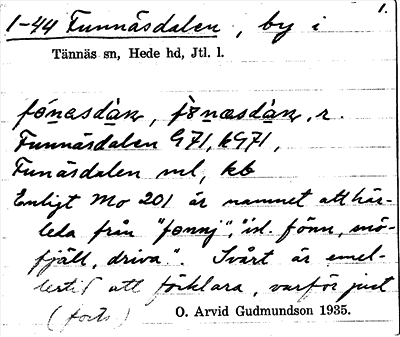 1.
1-44 Funnäsdalen, by i
Tännäs sn, Hede hd, Jtl. l.
Funnäsdalen G71, kG71,
Funäsdalen ml, kb
Enligt Mo 201 är namnet att här-
leda från "fonnj", isl. fönn, snö-
fjäll, driva". Svårt är emel-
lertid att förklara, varför just
(forts)
O. Arvid Gudmundson 1935.